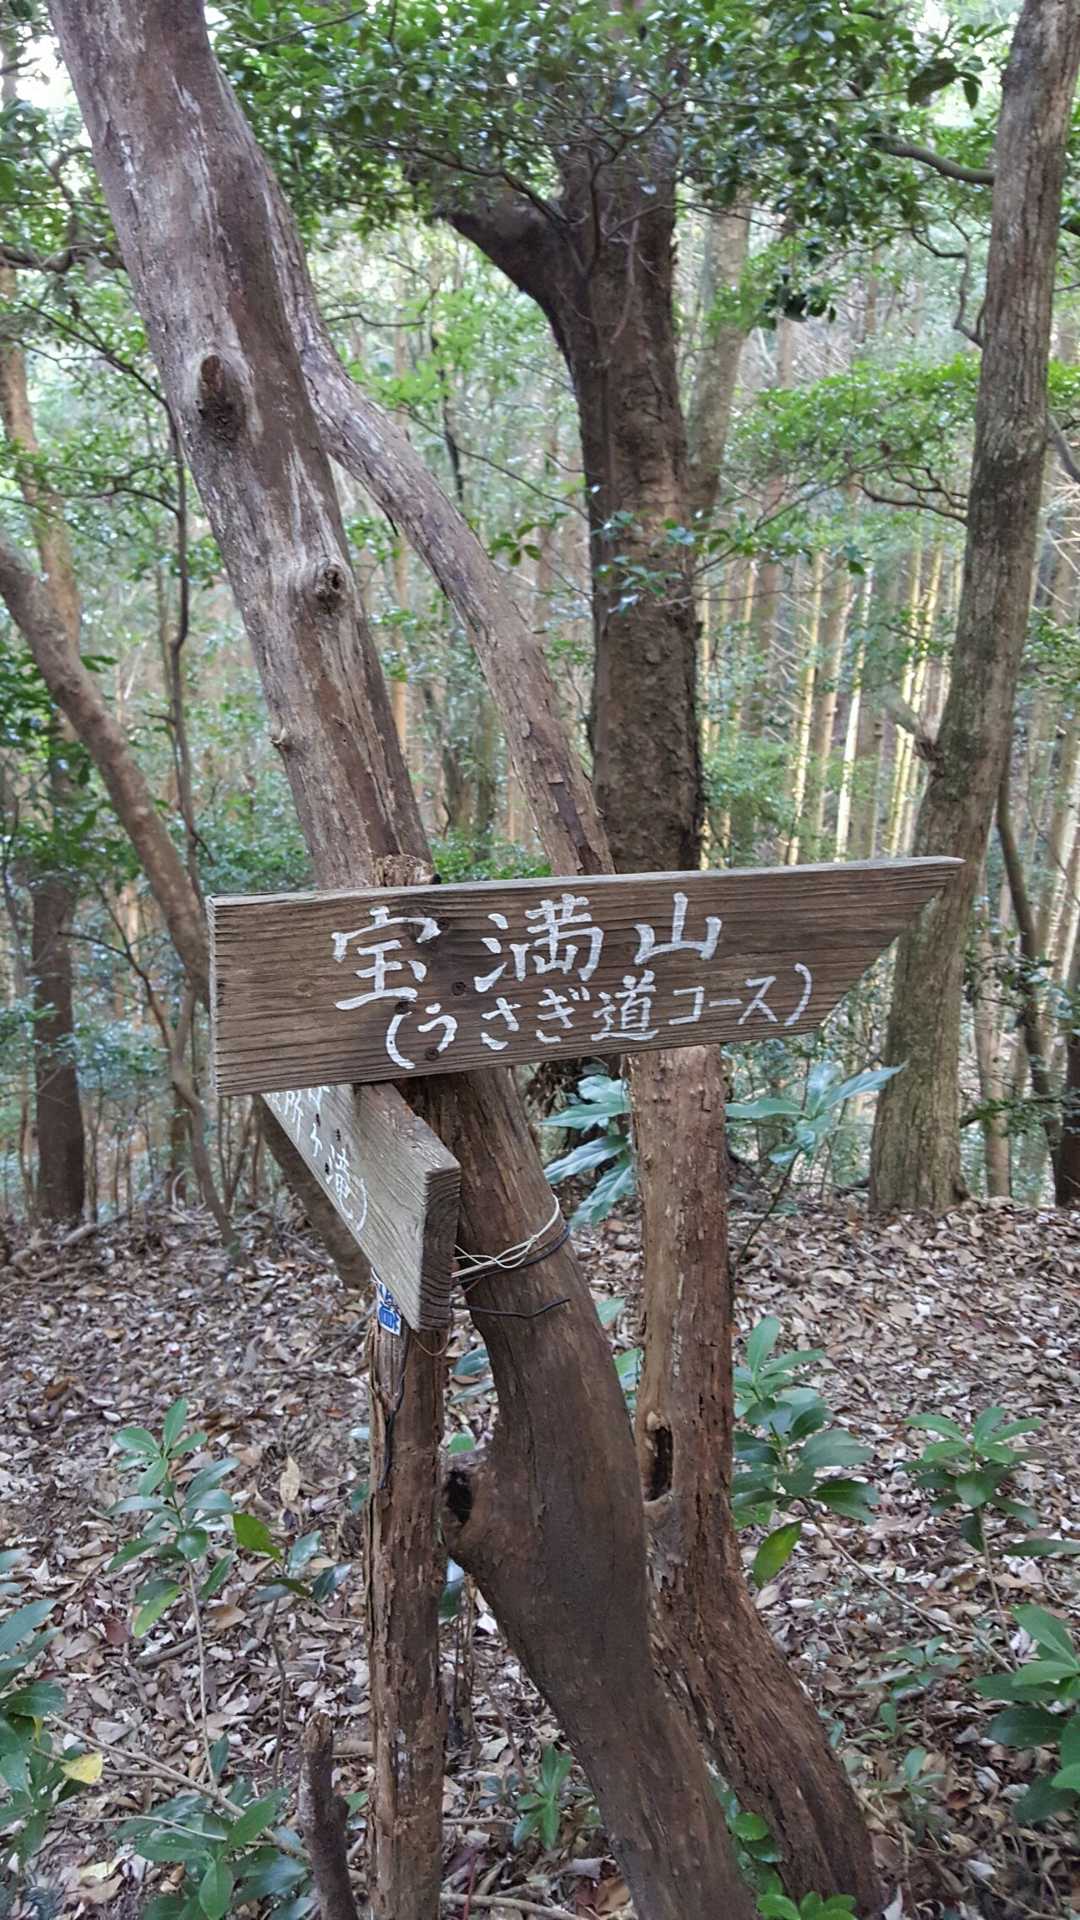 宝満山
(うさぎ道コース)
滝)